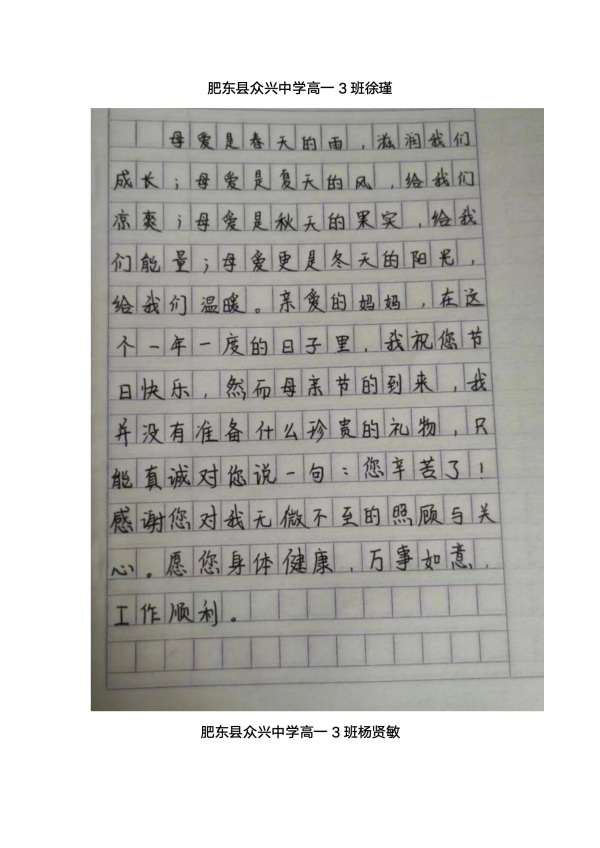 肥东县众兴中学高一 3 班徐瑾
母爱是春天的雨，滋润我们
成长；母爱是夏天的风，给我们
凉爽；母爱是秋天的果实，给我
们能量；母爱更是冬天的阳光，
给我们温暖。亲爱的妈妈，在这
个一年一度的日子里，我祝您节
日快乐，然而母亲节的到来，我
并没有准备什么珍贵的礼物，只
能真诚对您说一句：您辛苦了！
感谢您对我无微不至的照顾与关
心。愿您身体健康，万事如意，
工作顺利。
肥东县众兴中学高一 3 班杨贤敏